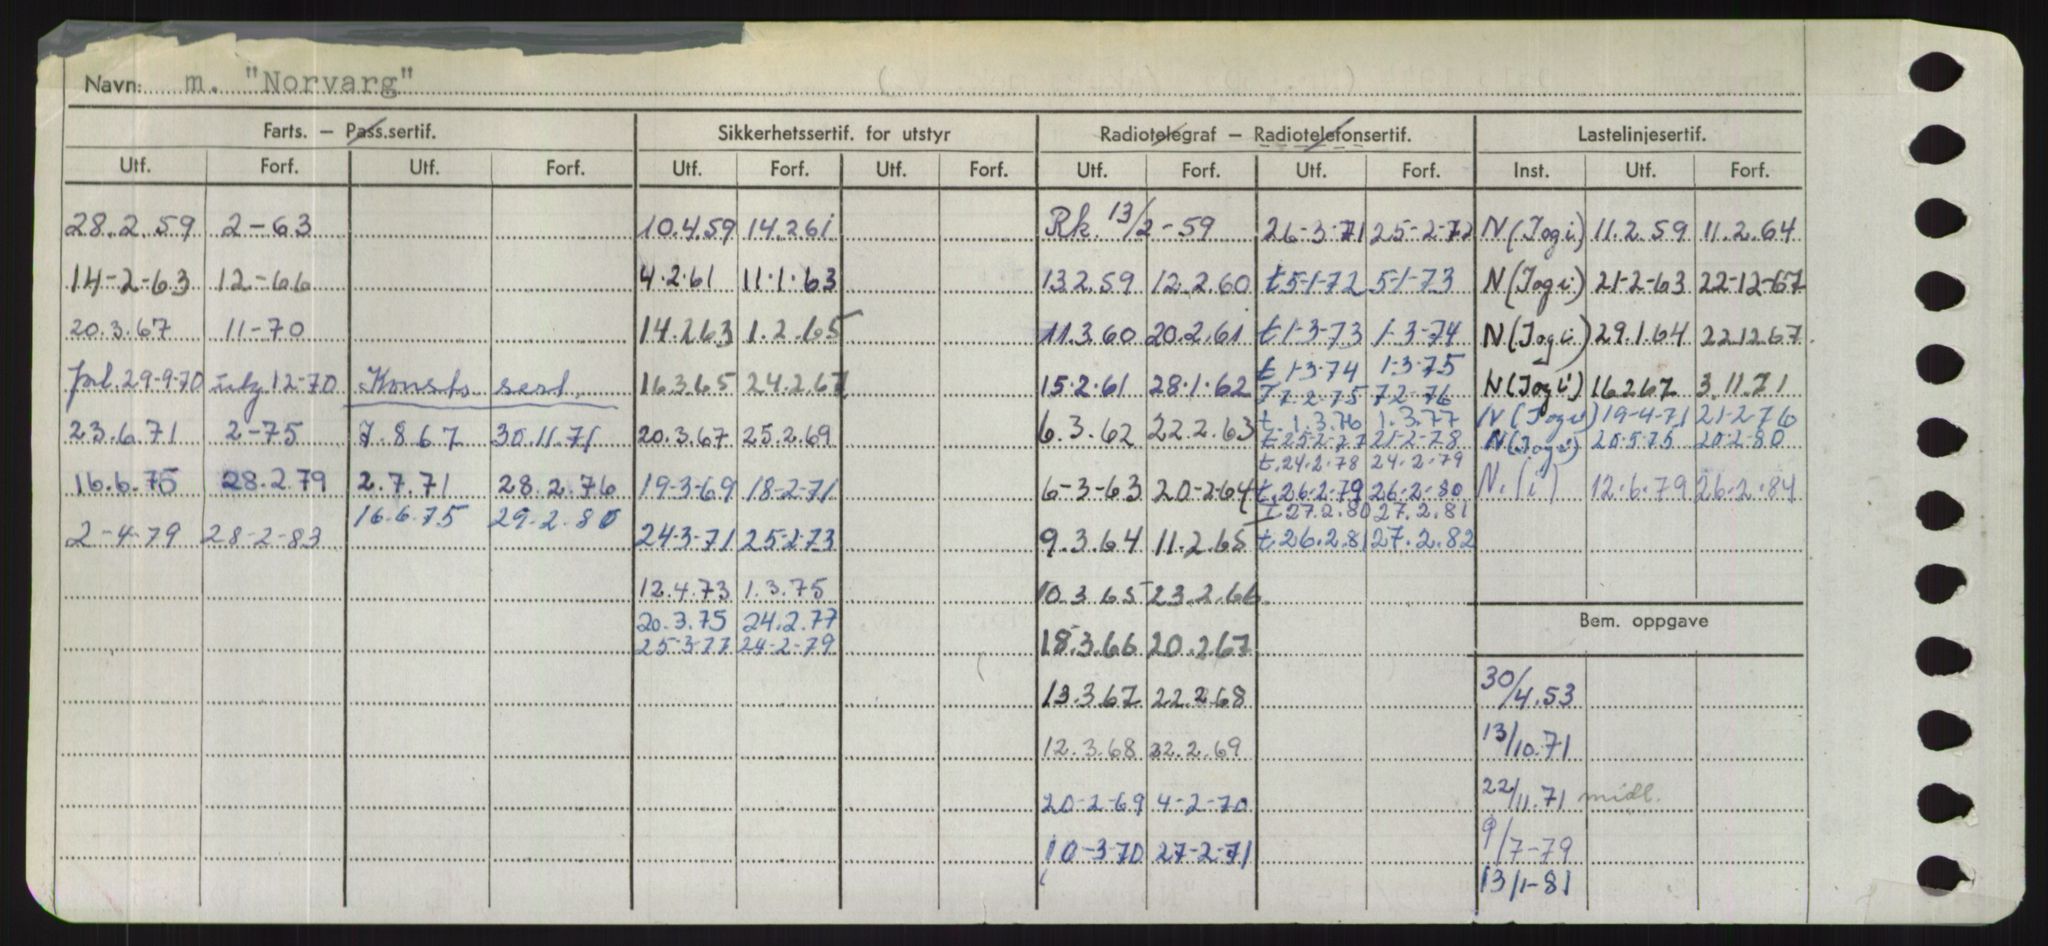 Navn: m. "Norvarg"
Farts. — Pass.sertif. Sikkerhetssertif. for utstyr Radiotelegraf — Radiotelefonsertif. Lastelinjesertif.
Utf. Forf. Utf. Forf. Utf. Forf. Utf. Forf. Utf. Forf. Utf. Forf. Inst. Utf. Forf.
28.2.59 2-63 10.4.59 14.2.61 Rk. 13/2-59 26-3-71 25-2-72 N(Togi) 11.2.59 11.2.64
14-2-63 12-66 4.2.61 11.1.63 13.2.59 12.2.60 t 5-1-72 5-1-73 N(Togi) 21-2-63 22-12-67
20.3.67 11-70 14.2.63 1.2.65 11.3.60 20.2.61 t 1-3-73 1-3-74 N(Togi) 29.1.64 22.12.67
t 1-3-74 1-3-75
29-9-70 12-70 Konstr. sert. 16.3.65 24.2.67 15.2.61 28.1.62 T 7-2-75 7-2-76 N(Togi) 16.2.67 3.11.71
t. 1.3.76 1.3.77 N(Togi) 19-4-71 21-2-76
23.6.71 2-75 7.8.67 30.11.71 20.3.67 25.2.69 6.3.62 22.2.63 t.25-2-77 21-2-78 N(Togi) 20-5-75 20-2-80
t.24-2-78 24-2-79
16.6.75 28.2.79 2.7.71 28.2.76 19-3-69 18-2-71 6-3-63 20-2-64 t.26-2-79 26-2-80 N.(i) 12.6.79 26.2.84
16.6.75 29.2.80 t.27.2.80 27.2.81
2-4-79 28-2-83 24-3-71 25-2-73 9.3.64 11.2.65 t.26.2.81 27.2.82
12.4.73 1.3.75 10.3.65 23.2.66
20.3.75 24.2.77 Bem. oppgave
25-3-77 24-2-79 18.3.66 20.2.67
13.3.67 22.2.68 30/4.53
12.3.68 22.2.69 13/10.71
20-2-69 4-2-70 22/11.71 midl.
10-3-70 27-2-71 9/7-79
13/1-81